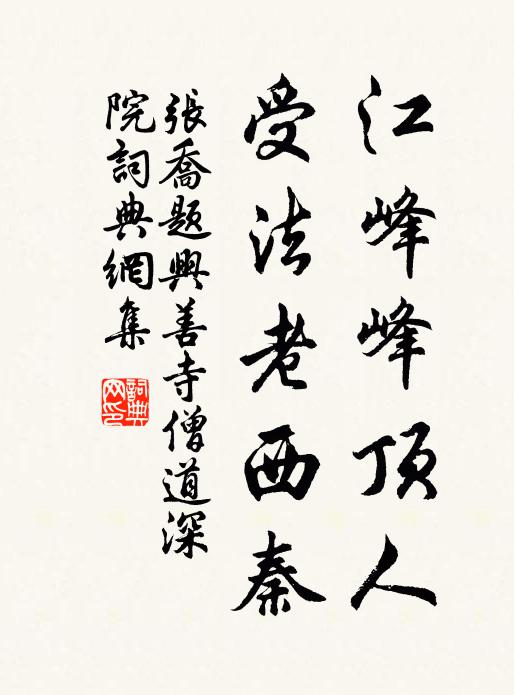 江峰峰頂人
受法老西秦
張喬題興善寺僧道深
院詞典網集
詞典
网印